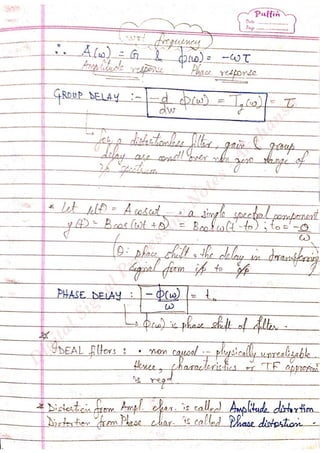 Puffin
Date
Page
w.r.t frequency
∴ A(ω) = G & φ(ω) = -ωτ
Amplitude response Phase response
GROUP DELAY :- -d/dω φ(ω) = Tg(ω) = τ
↳ for a distortionless filter, gain & group
delay are const over non zero range of
i/p spectrum
* Let x(t) = A cos ωt, a single spectral component
y(t) = B cos(ωt + θ) = B cos ω(t - to) ; to = -θ/ω
(θ: phase shift, the delay in transferring
signal from i/p to o/p
PHASE DELAY : -φ(ω)/ω = to
↳ φ(ω) is phase shift of filter.
IDEAL filters : • non causal -- physically unrealizable.
Hence, characteristics or TF
is reqd
* Distortion from Ampl. char. is called Amplitude distortion
Distortion from Phase char. is called Phase distortion.